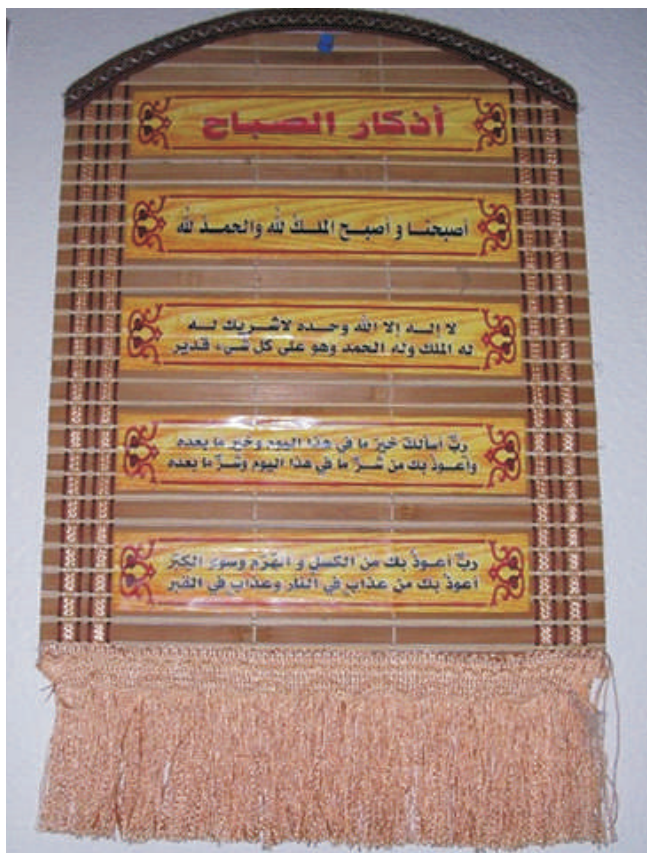 أذكار الصباح
أصبحنا و أصبح الملك لله والحمد لله
لا إله إلا الله وحده لاشريك له
له الملك وله الحمد وهو على كل شيء قدير
ربّ أسألك خير ما في هذا اليوم وخير ما بعده
وأعوذ بك من شرّ ما في هذا اليوم وشرّ ما بعده
ربّ أعوذ بك من الكسل و الهرم وسوء الكبر
أعوذ بك من عذاب في النار وعذاب في القبر